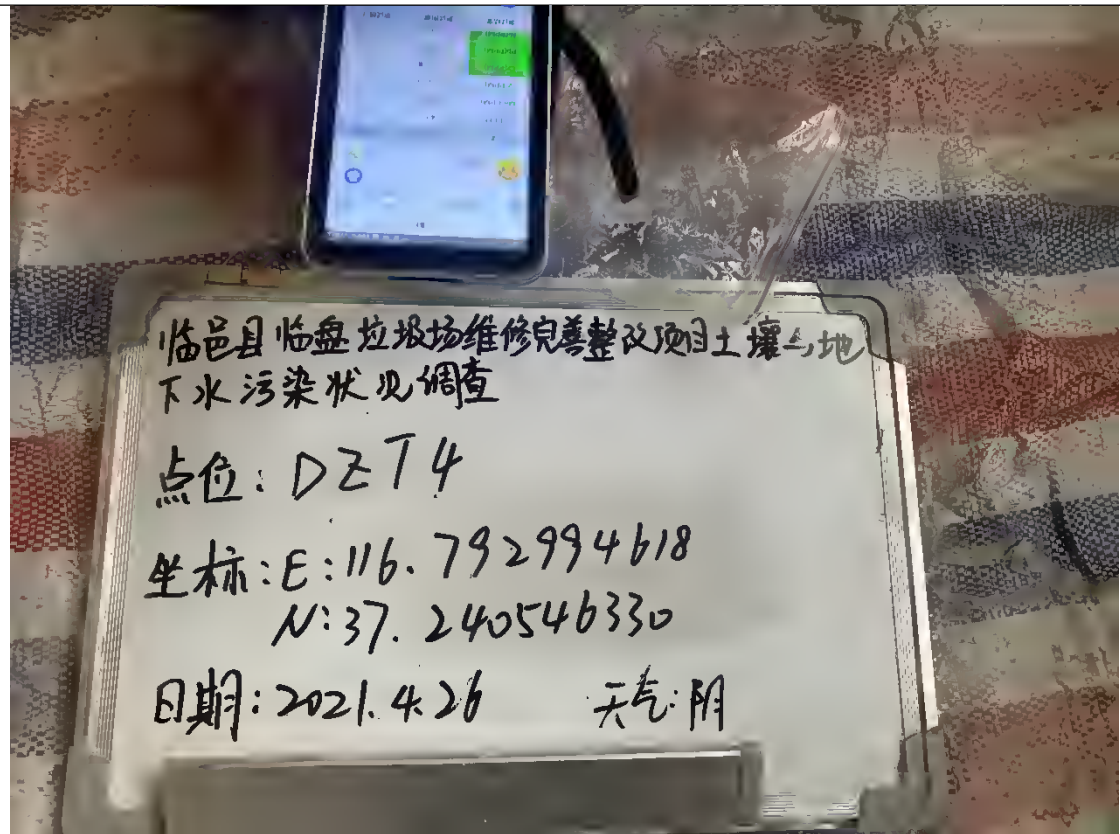 临邑县临盘垃圾场维修完善整改项目土壤与地
下水污染状况调查
点位：DZT4
坐标：E：116.792994618
N：37.240546330
日期：2021.4.26 天气：阴